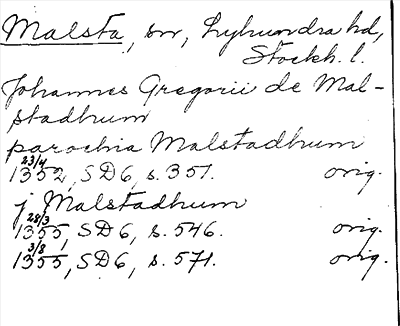 Malsta, sn, Lyhundra hd,
Stockh. l.
Johannes Gregorii de Mal-
stadhum
parochia Malstadhum
23/4
1352, SD6, s. 351. orig.
j Malstadhum
28/3
1355, SD6, s. 546. orig.
3/8
1355, SD6, s. 571. orig.